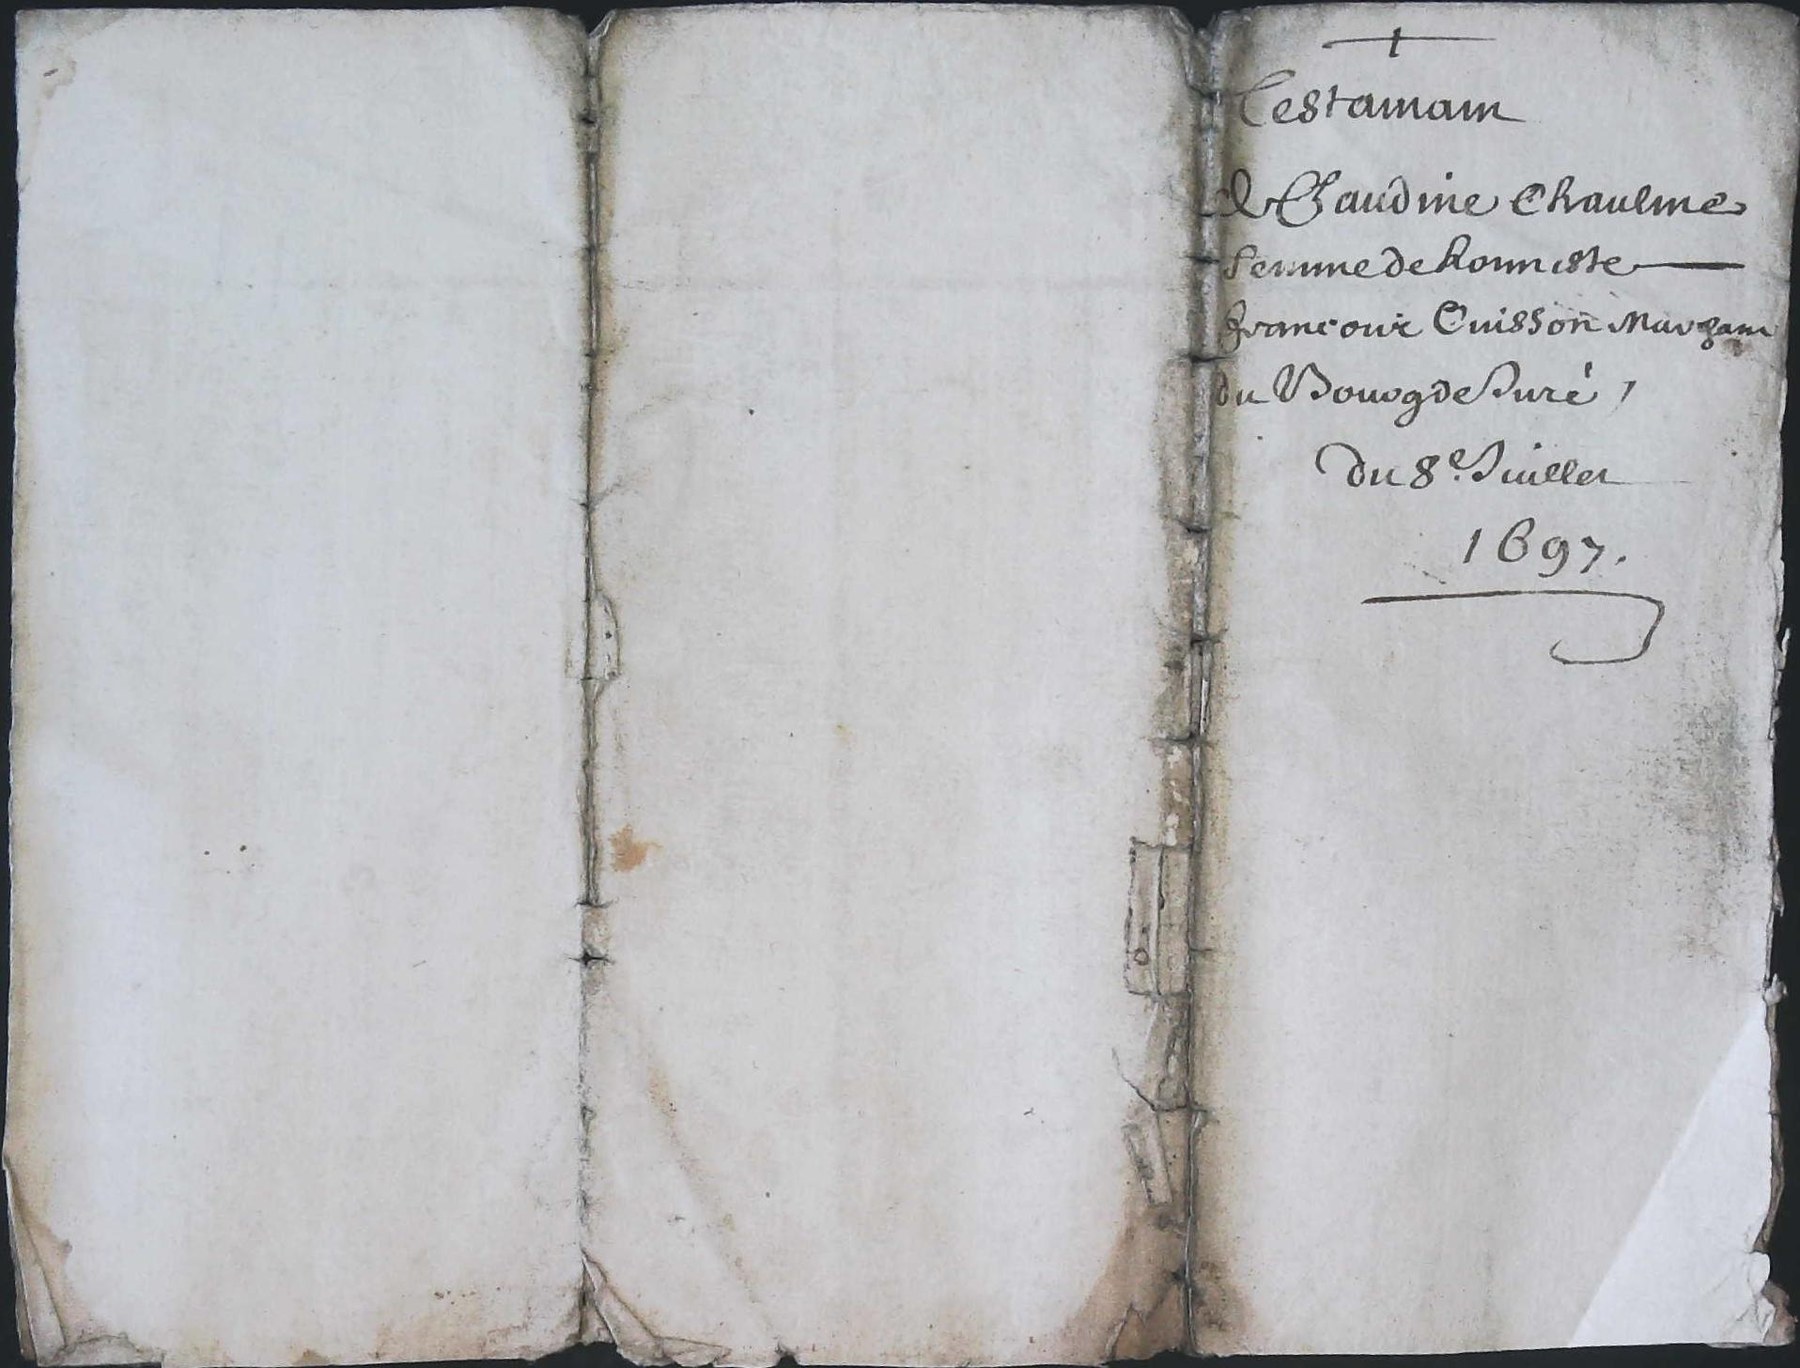 Testamam
de Claudine Chaulme
femme de honneste
françois Cuisson Marchant
du Bourg de Juré
du 8e. Juillet
1697.